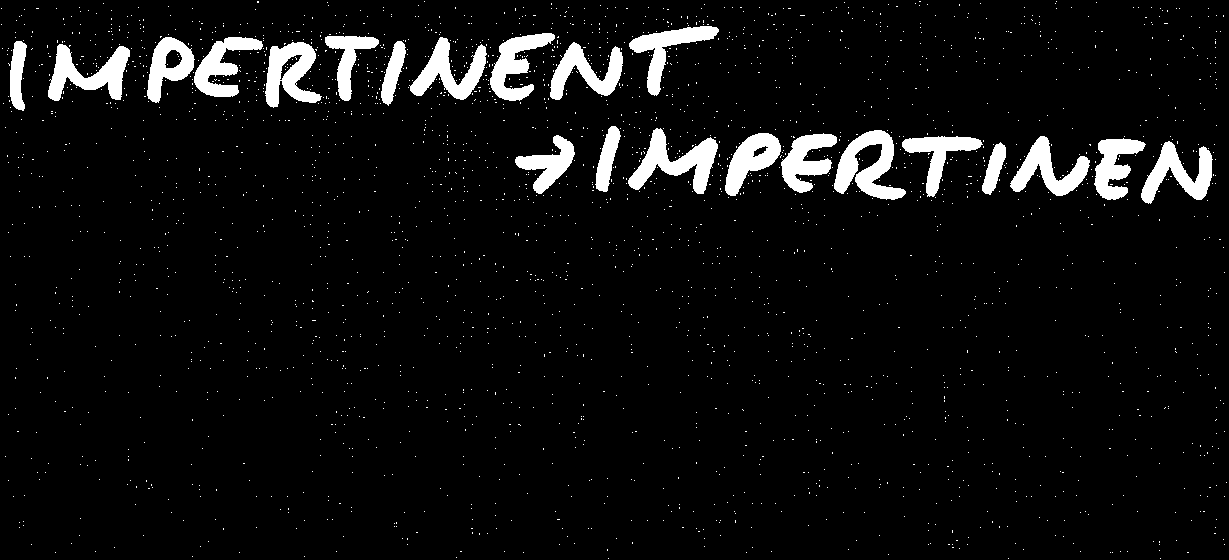 IMPERTINENT
→IMPERTINEN